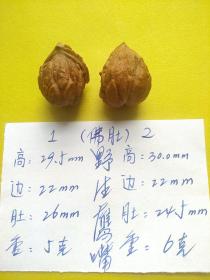 1 (佛肚) 2
高：29.5mm 野 高：30.0mm
边：22mm 生 边：22mm
肚：26mm 鹰 肚：24.5mm
重：5克 嘴 重：6克